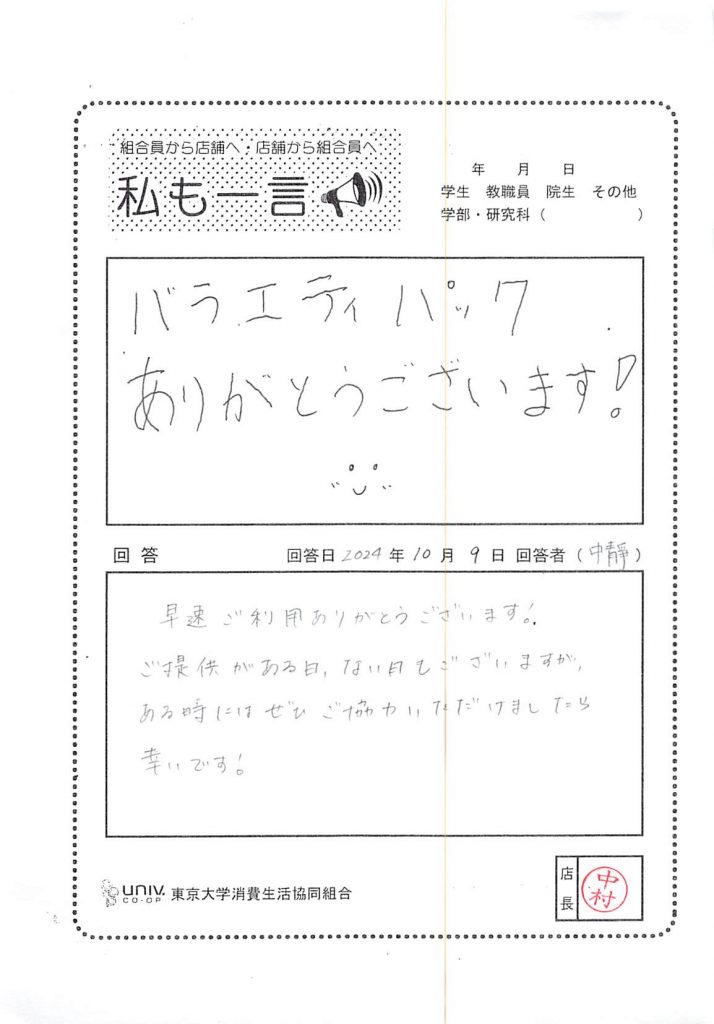 組合員から店舗へ・店舗から組合員へ
私も一言
年 月 日
学生 教職員 院生 その他
学部・研究科（ ）
バラエティパック
ありがとうございます!
回答 回答日 2024 年 10 月 9 日 回答者（中靜）
早速ご利用ありがとうございます!
ご提供がある日、ない日もございますが、
ある時にはぜひご協力いただけましたら
幸いです!
univ. CO-OP 東京大学消費生活協同組合
店長 中村